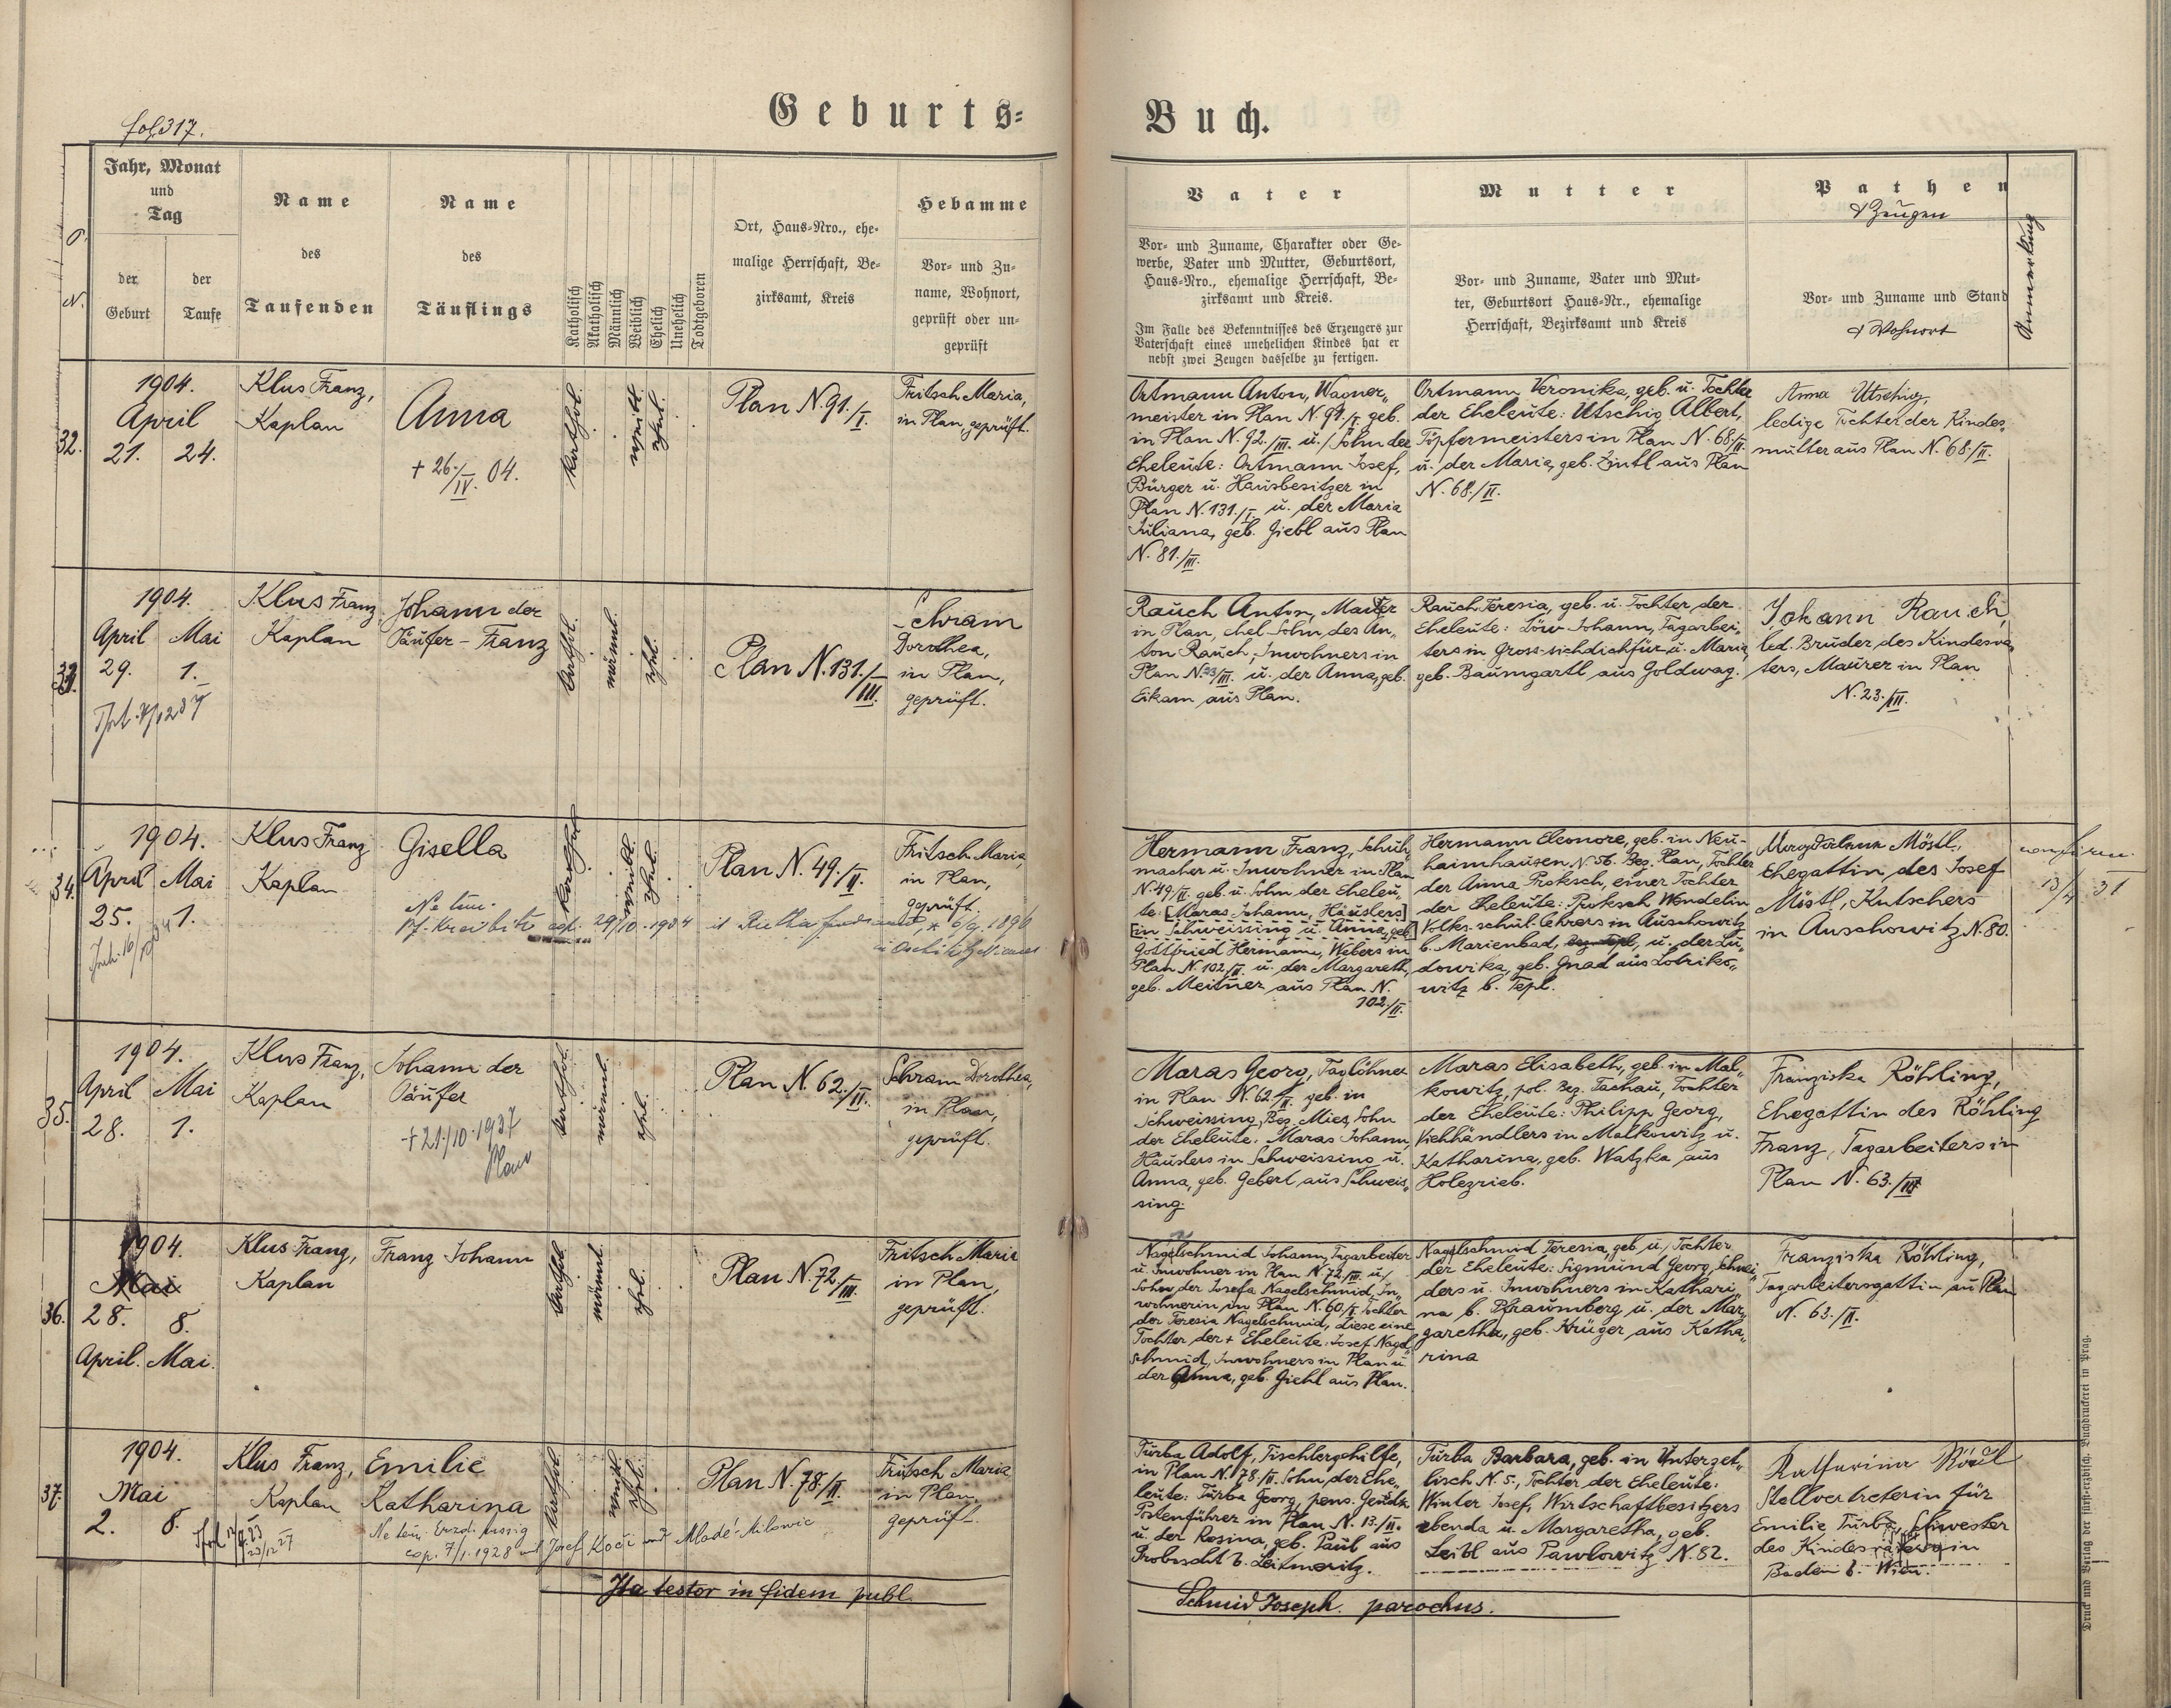 fol. 317.
Geburts=
Buch.
N.
Jahr, Monat
und
Tag
der
Geburt
der
Taufe
Name
des
Taufenden
Name
des
Täuflings
Katholisch
Akatholisch
Männlich
Weiblich
Ehelich
Unehelich
Todtgeboren
Ort, Haus-Nro., ehe-
malige Herrschaft, Be-
zirksamt, Kreis
Hebamme
Vor- und Zu-
name, Wohnort,
geprüft oder un-
geprüft
Vater
Vor- und Zuname, Charakter oder Ge-
werbe, Vater und Mutter, Geburtsort,
Haus-Nro., ehemalige Herrschaft, Be-
zirksamt und Kreis.
Im Falle des Bekenntnisses des Erzeugers zur
Vaterschaft eines unehelichen Kindes hat er
nebst zwei Zeugen dasselbe zu fertigen.
Mutter
Vor- und Zuname, Vater und Mut-
ter, Geburtsort Haus-Nr., ehemalige
Herrschaft, Bezirksamt und Kreis
Pathen
& Zeugen
Vor- und Zuname und Stand
& Wohnort
Anmerkung
32.
1904.
April
21. 24.
Klus Franz,
Kaplan
Anna
+ 26./IV. 04.
kathol.
weibl.
ehel.
Plan N. 91./I.
Fritsch Maria,
in Plan geprüft.
Ortmann Anton, Wagner„
meister in Plan N. 91./I. geb.
in Plan N. 92./III. u./ Sohn der
Eheleute: Ortmann Josef,
Bürger u. Hausbesitzer in
Plan N. 131./I. u. der Maria
Juliana, geb. Giebl aus Plan
N. 81./III.
Ortmann Veronika, geb. u. Tochter
der Eheleute: Utschig Albert,
Töpfermeisters in Plan N. 68./II.
u. der Maria, geb. Zintl aus Plan
N. 68./II.
Anna Utschig,
ledige Tochter der Kindes„
mutter aus Plan N. 68./II.
33.
1904.
April Mai
29. 1.
Klus Franz
Kaplan
Johann der
Täufer - Franz
kathol.
männl.
ehel.
Plan N. 131./III.
Schram
Dorothea,
in Plan,
geprüft.
Rauch Anton, Maurer
in Plan, ehel. Sohn des An„
ton Rauch, Inwohners in
Plan N. 23/III. u. der Anna, geb.
Eikam aus Plan.
Rauch Teresia, geb. u. Tochter der
Eheleute: Löw Johann, Tagarbei„
ters in Gross-sichdichfür u. Maria,
geb. Baumgartl aus Goldwag.
Johann Rauch,
led. Bruder des Kindesva„
ters, Maurer in Plan
N. 23./III.
34.
1904.
April Mai
25. 1.
Klus Franz
Kaplan
Gisella
Ne tem.
29/10. 1934
kathol.
weibl.
ehel.
Plan N. 49./II.
Fritsch Maria,
in Plan,
geprüft.
Hermann Franz, Schuh„
macher u. Inwohner in Plan
N. 49/II. geb. u. Sohn der Eheleu„
te: [Maras Johann, Häuslers]
[in Schweissing u. Anna, geb.]
Gottfried Hermann, Webers in
Plan N. 102/II. u. der Margareth,
geb. Meitner aus Plan N.
102./II.
Hermann Eleonore, geb. in Neu-
haimhausen N. 56. Bez. Plan, Tochter
der Anna Proksch, einer Tochter
der Eheleute: Proksch Wendelin
Volks-schul-lehrers in Auschowitz
b. Marienbad, u. der Lu„
dowika, geb. Gnad aus Lohriko„
witz b. Tepl.
Magdalena Möstl,
Ehegattin des Josef
Möstl, Kutschers
in Auschowitz N. 80.
35.
1904.
April Mai
28. 1.
Klus Franz,
Kaplan
Johann der
Täufer
+ 21./10. 1937
Plan
kathol.
männl.
ehel.
Plan N. 62./II.
Schram Dorothea,
in Plan,
geprüft.
Maras Georg, Taglöhner
in Plan N. 62./II. geb. in
Schweissing, Bez. Mies, Sohn
der Eheleute: Maras Johann,
Häuslers in Schweissing u.
Anna, geb. Gebert aus Schweis„
sing.
Maras Elisabeth, geb. in Mal„
kowitz, pol. Bez. Tachau, Tochter
der Eheleute: Philipp Georg,
Viehhändlers in Malkowitz u.
Katharina, geb. Watzka aus
Holezrieb.
Franziska Röhling,
Ehegattin des Röhling
Franz, Tagarbeiters in
Plan N. 63./III
36.
1904.
Mai
28. 8.
April. Mai.
Klus Franz,
Kaplan
Franz Johann
kathol.
männl.
ehel.
Plan N. 72/III.
Fritsch Maria
in Plan,
geprüft.
Nagelschmid Johann, Tagarbeiter
u. Inwohner in Plan N. 72./III. u./
Sohn der Josefa Nagelschmid, In„
wohnerin in Plan N. 60/I. Tochter
der Teresia Nagelschmid, diese eine
Tochter der + Eheleute: Josef Nagel
schmid, Inwohners in Plan u
der Anna, geb. Giehl aus Plan.
Nagelschmid Teresia, geb. u./ Tochter
der Eheleute: Sigmund Georg, Schnei„
ders u. Inwohners in Kathari„
na b. Pfraumberg u. der Mar„
garetha, geb. Krüger aus Katha„
rina
Franziska Röhling,
Tagarbeitersgattin aus Plan
N. 63./II.
37.
1904.
Mai
2. 8.
Klus Franz,
Kaplan
Emilie
Katharina
Ne tem. Erzd. Aussig
cop. 7/1. 1928 mit Josef Kočí aus Mladé-Milowic
kathol.
weibl.
ehel.
Plan N. 78./II.
Fritsch Maria
in Plan.
geprüft.
Turba Adolf, Tischlergehilfe,
in Plan N. 78./II. Sohn der Ehe„
leute: Turba Georg, pens. Gend.
Postenführer in Plan N. 13./II.
u. der Rosina, geb. Paul aus
Proboscht b. Leitmeritz.
Turba Barbara, geb. in Unterzet„
lisch N. 5., Tochter der Eheleute:
Winter Josef, Wirtschaftbesitzers
ebenda u. Margaretha, geb.
Leibl aus Pawlowitz N. 82.
Katharina
Stellvertreterin für
Emilie Turba, Schwester
des Kindesvaters in
Baden b. Wien.
Ita testor in fidem publ.
Schmid Joseph. parochus.
Druck und Verlag der fürsterzbisch. Buchdruckerei in Prag.